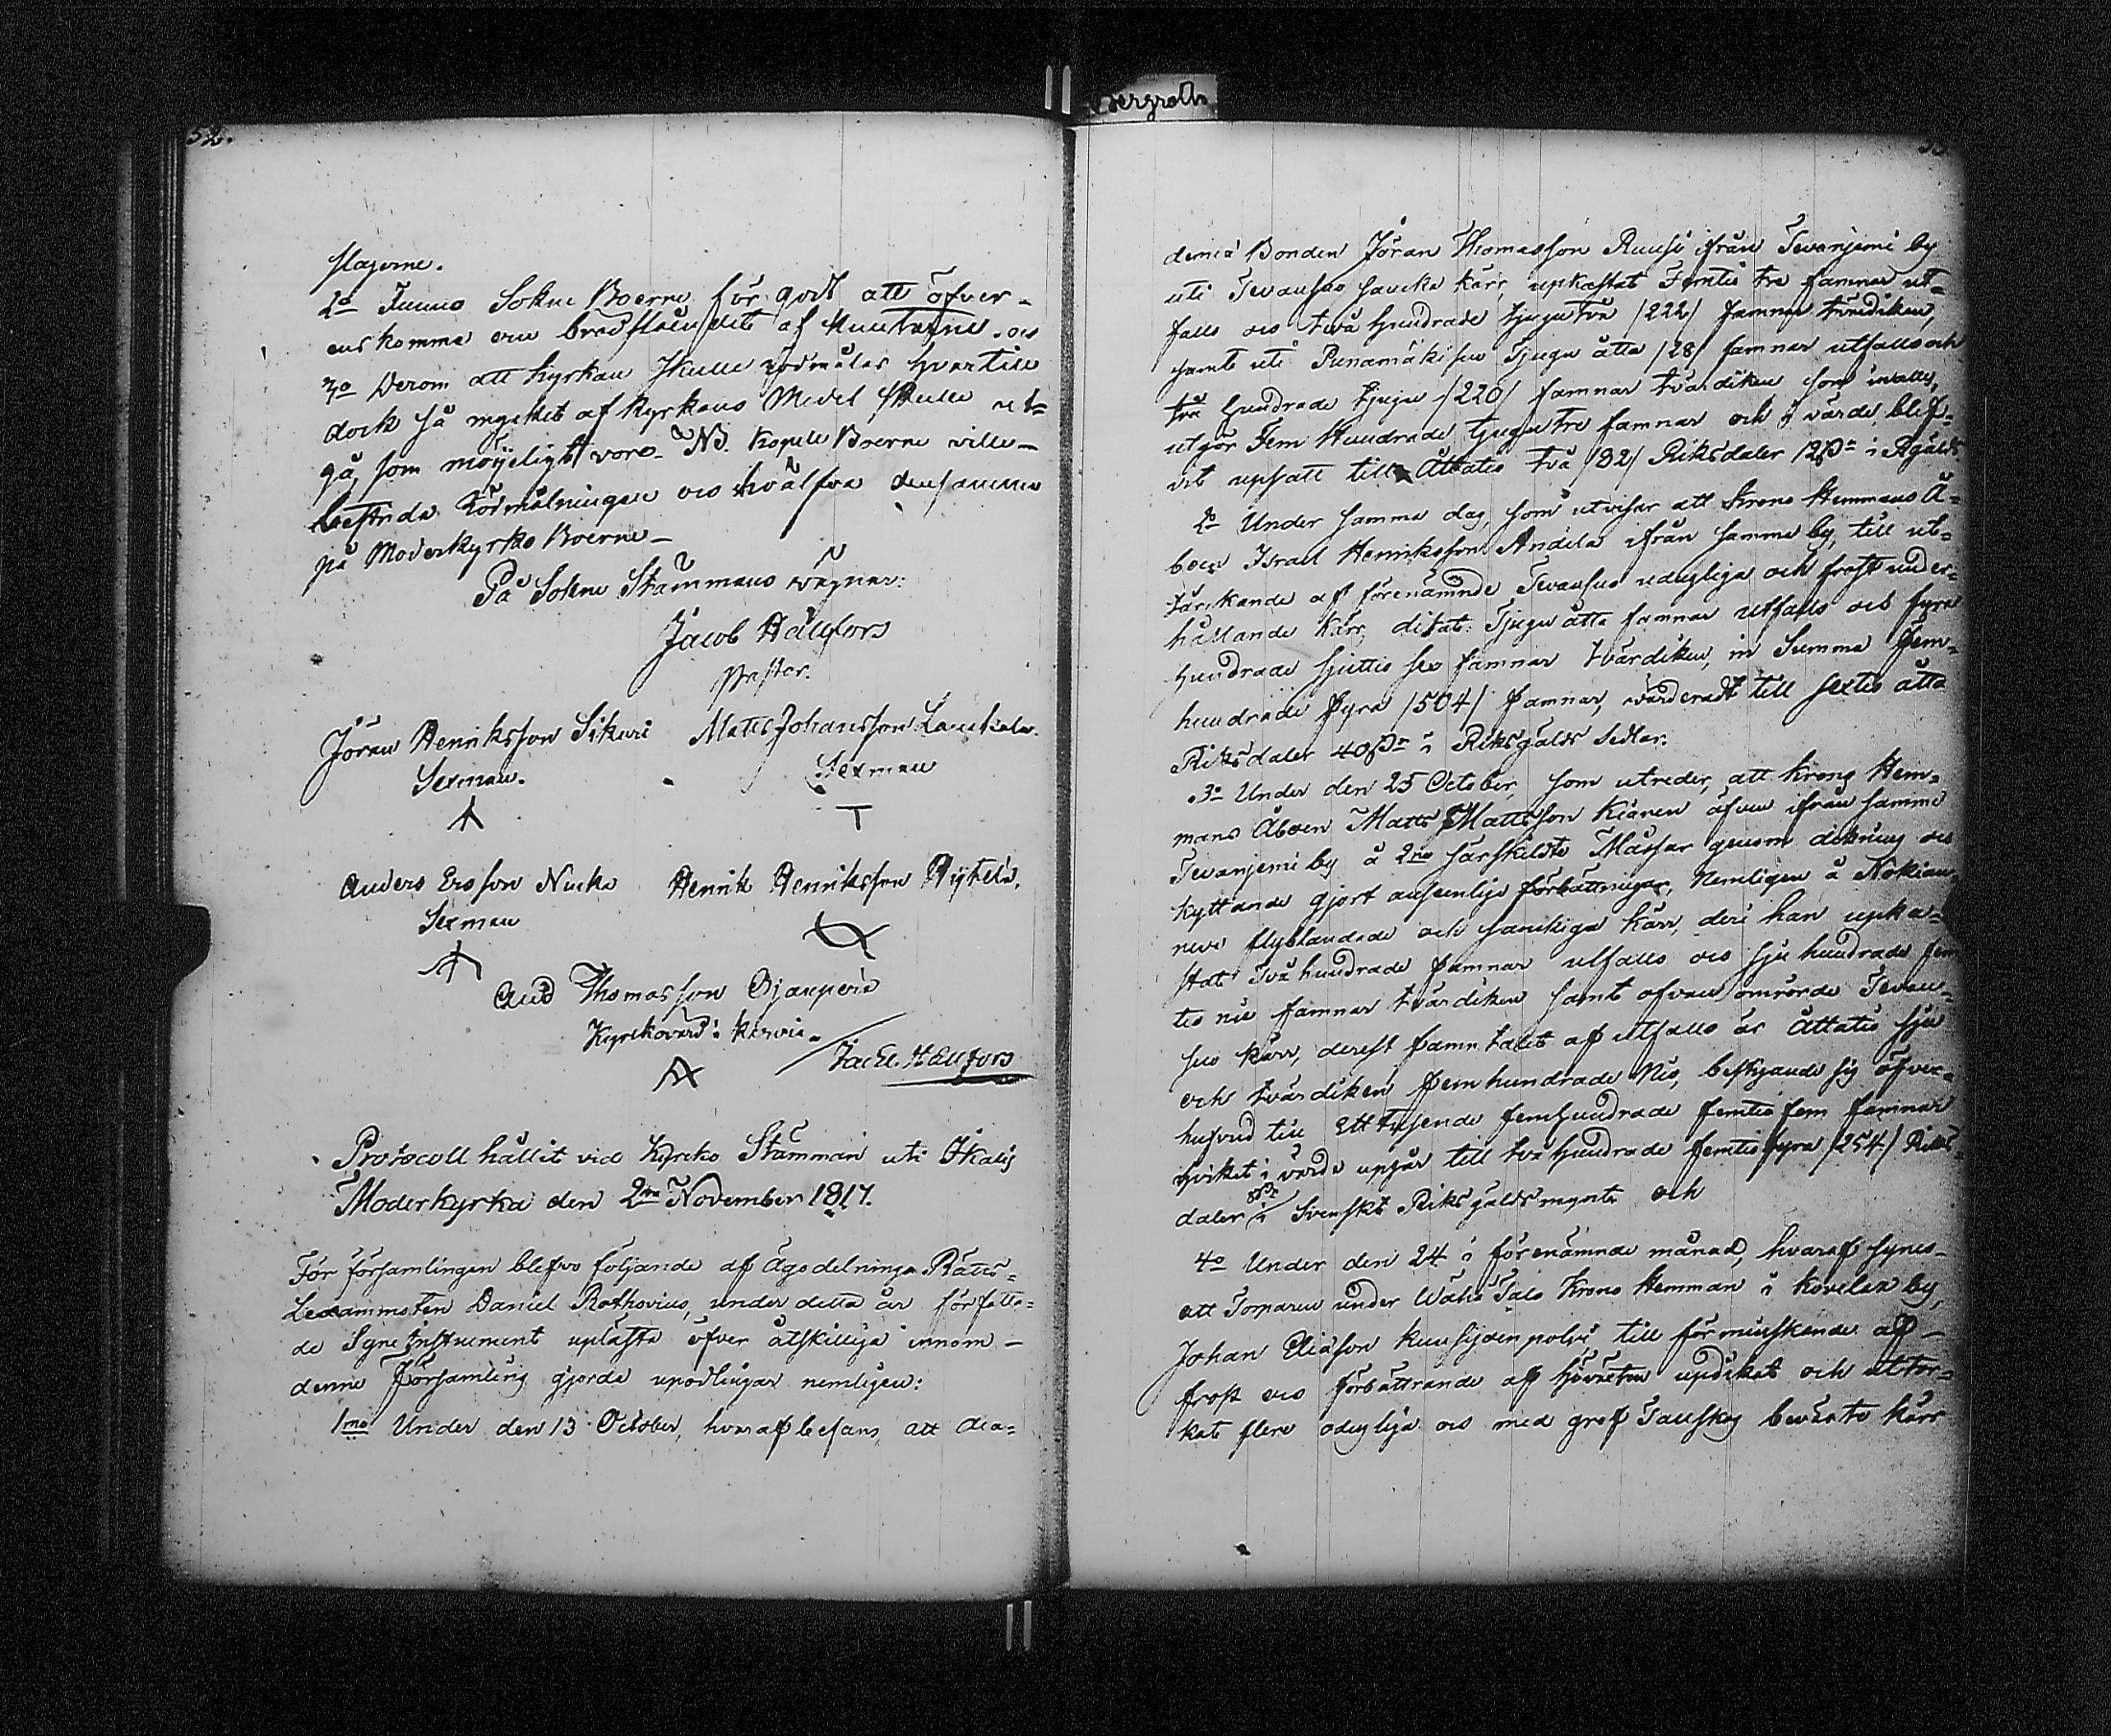 Bergroth
52.
slagerne.
2o Funno Sokne Boerne för godt att öfver-
ens komma om brädslåendet af Knutarne. och
3o Derom att kyrkan skulle rödmålas hvartill
dock så mycket af kyrkans Medel skulle ut-
gå, som möijeligt vore. NB. Kapell Boerne ville
bestrida Rödmålningen och hvälfva densamma
på Moderkyrko Boerne
På Sokne Stämmans wägnar:
Jacob Hällfors
Pastor.
Jöran Henriksson Sikuri Matts Johansson Lauhiala
Sexman. Sexman
Anders Ersson Nucka Henrik Henriksson Hyhelä.
Sexman
And Thomasson Ojanperä
Kyrkovärd i Kierwia.
Jac El. Hällfors
Protocoll hållit vid Kyrko Stämman uti Ikalis
Moderkyrka den 2dra November 1817.
För församlingen blefvo följande af Ägodelnings Rätts-
Ledammoten Daniel Rothovius, under detta år författa-
de Syne Instrument upläste öfver åtskillige innom
denne församling gjorde upodlingar nemligen:
1mo Under den 13 October, hvaraf befans, att der-
53
demiä Bonden Jöran Thomasson Ruusi ifrån Tevanjemi by
uti Tevansuo sancka kärr, upkastat Femtio tre famnar ut-
falls och två hundrade tjugu två /222/ famnar tvärdiken,
samt uti Punamäkisuo Tjugu åtta /28/ famnar utfalls och
två hundrade tjugu /220/ famnar tvärdiken som inalles,
utgör Fem Hundrade tjugu tre famnar och i värde blif-
vit upsatt till Åttatio två /82/ Riksdaler 12 s:r i Rgälds
2o Under samma dag, som utvisar att Krono Hemmans Å-
boen Israel Henriksson Andila ifrån samma by, till ut-
tårkande af förenämnde Tevansuo odugliga och frost under-
hållande kärr, dikat: Tjugu åtta famnar utfalls och fyra
hundrade sjuttio sex famnar tvärdiken, in Summa fem-
hundrade fyra /504/ famnar, värderadt till sextio åtta
Riksdaler 40 s:r i Riksgälds Sedlar.
3o Under den 25 October, som utreder, att Krono Hem-
mans Åboen Matts Mattsson Kiären äfven ifrån samma
Tevanjemi by å 2ne särskildte Måssar genom dikning och
kyttande gjort ansenlige förbättringar, Nemligen å Nokian-
neva flyblandade och sanckiga kärr, deri han upka-
stat Två hundrade famnar utfalls och sju hundrade fem
tio nie famnar tvärdiken samt ofvan omrörde Tevan-
suo kärr, derest famntalet af utfalls är Åttatio sju
och tvärdiken fem hundrade Nio, bestigande sig öfver-
hufvud till Ett tusende femhundrade femtio fem famnar
hvilket i värde upgår till två hundrade femtio fyra /254/ Riks-
daler i Svenskt Riksgäldsmynt och
4o Under den 24 i förenämnde månad, hvaraf synes
att Torparen under Waha Talo Krono Hemman i Kovelax by,
Johan Eliasson Kuusijoenpolvi till förminskande af
frost och förbättrande af hövexten updikat och uttor-
kat flere oduglige och med grof Tallskog bevexte kärr